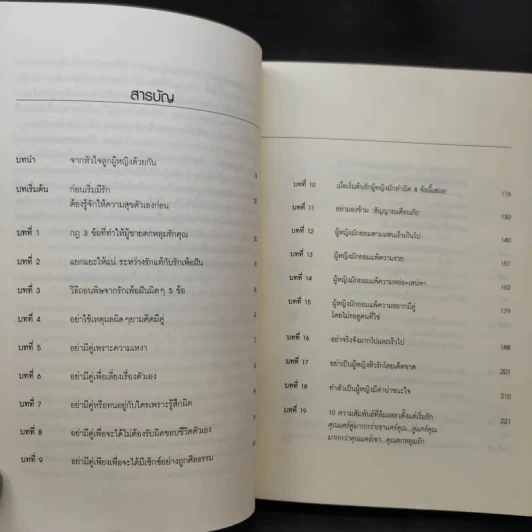 สารบัญ
บทนำ จากหัวใจลูกผู้หญิงด้วยกัน
บทเริ่มต้น ก่อนเริ่มมีรัก
ต้องรู้จักให้ความสุขตัวเองก่อน
บทที่ 1 กฎ 3 ข้อที่ทำให้ผู้ชายตกหลุมรักคุณ
บทที่ 2 แยกแยะให้แน่ ระหว่างรักแท้กับรักเพ้อฝัน
บทที่ 3 วิธีถอนพิษจากรักเพ้อฝันผิดๆ 5 ข้อ
บทที่ 4 อย่าใช้เหตุผลผิดๆ ยามคิดมีคู่
บทที่ 5 อย่ามีคู่เพราะความเหงา
บทที่ 6 อย่ามีคู่เพื่อเลี่ยงเรื่องตัวเอง
บทที่ 7 อย่ามีคู่หรือทนอยู่กับใครเพราะรู้สึกผิด
บทที่ 8 อย่ามีคู่เพื่อจะได้ไม่ต้องรับผิดชอบชีวิตตัวเอง
บทที่ 9 อย่ามีคู่เพียงเพื่อจะได้มีเซ็กซ์อย่างถูกศีลธรรม
บทที่ 10 เมื่อเริ่มต้นรักผู้หญิงมักทำผิด 8 ข้อนี้เสมอ 116
บทที่ 11 อย่ามองข้าม 'สัญญาณเตือนภัย' 130
บทที่ 12 ผู้หญิงมักยอมตามแฟนเร็วเกินไป 140
บทที่ 13 ผู้หญิงมักยอมแพ้ความรวย 151
บทที่ 14 ผู้หญิงมักยอมแพ้ความหล่อ+เสน่หา 162
บทที่ 15 ผู้หญิงมักยอมแพ้ความอยากมีคู่ 179
โดยไม่รอดูคนที่ใช่
บทที่ 16 อย่าจริงจังมากไปและเร็วไป 188
บทที่ 17 อย่าเป็นผู้หญิงหิวรักโดยเด็ดขาด 201
บทที่ 18 ทำตัวเป็นผู้หญิงมีค่าน่าชนะใจ 210
บทที่ 19 10 ความสัมพันธ์ที่ล้มเหลวตั้งแต่เริ่มรัก 221
คุณแคร์คู่มากกว่าเขาแคร์คุณ...คู่แคร์คุณ
มากกว่าคุณแคร์เขา...คุณตกหลุมรัก